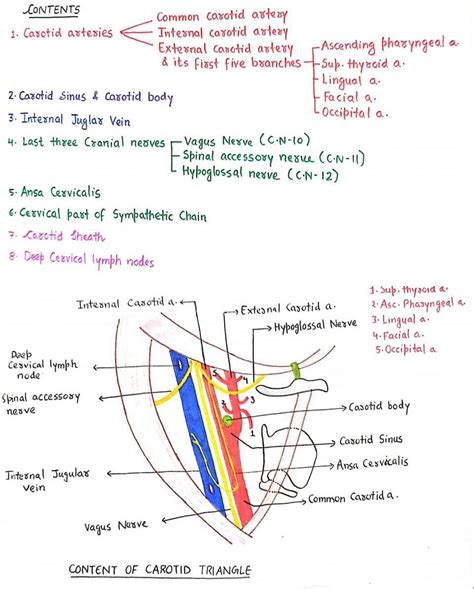 CONTENTS
1. Carotid arteries
Common Carotid artery
Internal Carotid artery
External Carotid artery
& its first five branches
Ascending pharyngeal a.
Sup. thyroid a.
Lingual a.
Facial a.
Occipital a.
2. Carotid Sinus & Carotid body
3. Internal Juglar Vein
4. Last three Cranial nerves
Vagus Nerve (C.N-10)
Spinal accessory nerve (C.N-11)
Hypoglossal nerve (C.N-12)
5. Ansa Cervicalis
6. Cervical part of Sympathetic Chain
7. Carotid Sheath
8. Deep Cervical lymph nodes
1. Sup. thyroid a.
2. Asc. Pharyngeal a.
3. Lingual a.
4. Facial a.
5. Occipital a
Internal Carotid a.
External Carotid a.
Hypoglossal Nerve
Deep
Cervical lymph
node
Spinal accessory
nerve
5
4
3
2
1
Carotid body
Carotid Sinus
Ansa Cervicalis
Internal Jugular
vein
Common Carotid a.
Vagus Nerve
CONTENT OF CAROTID TRIANGLE